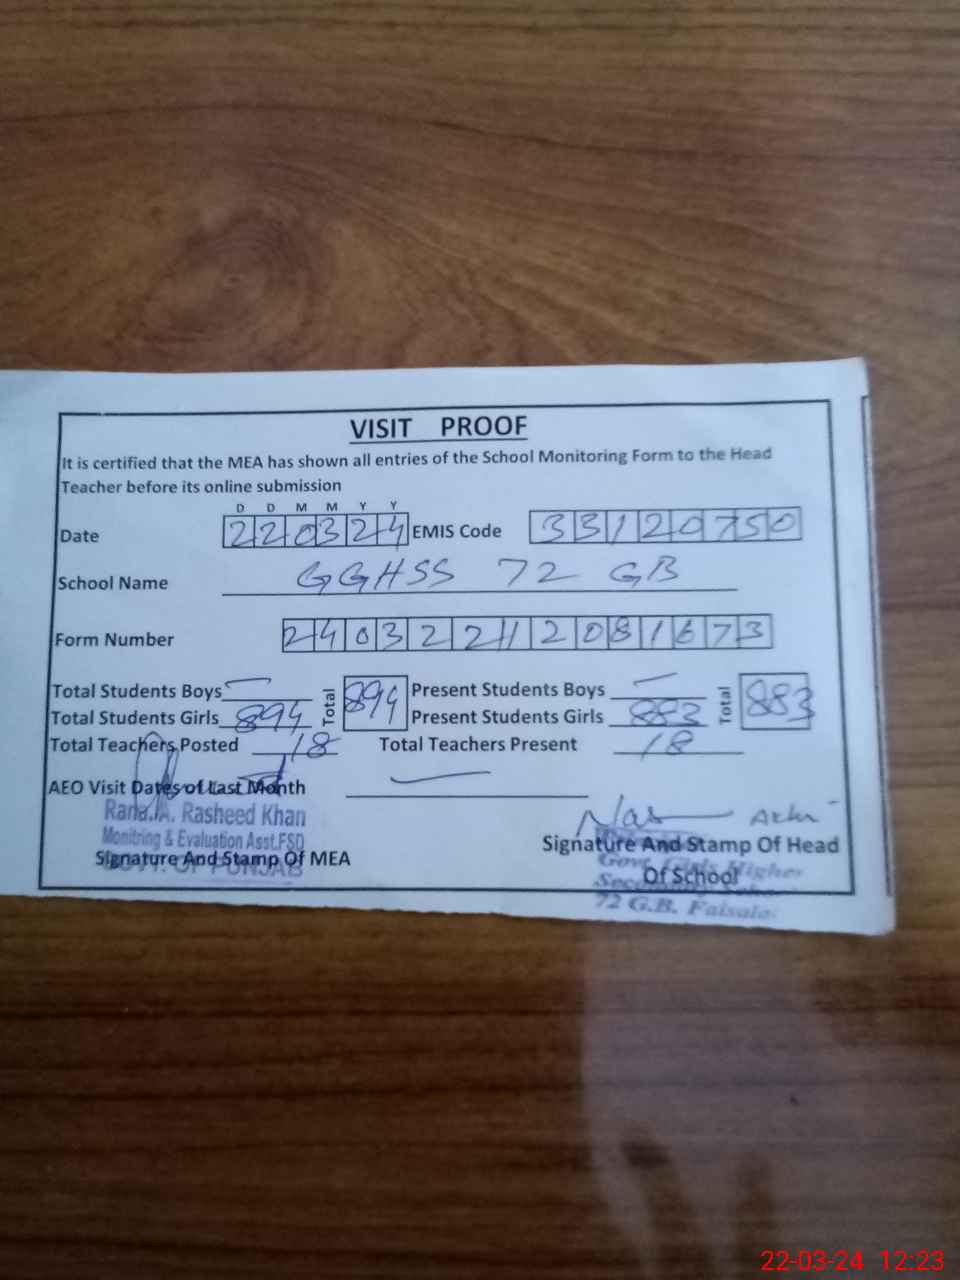 VISIT PROOF
It is certified that the MEA has shown all entries of the School Monitoring Form to the Head
Teacher before its online submission
D D M M Y Y
Date 220324 EMIS Code 33120750
School Name GGHSS 72 GB
Form Number 240322112081673
Total Students Boys — Total 894 Present Students Boys — Total 883
Total Students Girls 894 Present Students Girls 883
Total Teachers Posted 18 Total Teachers Present 18
AEO Visit Dates of Last Month —
Rana.A. Rasheed Khan
Monitring & Evaluation Asst.FSD
GOVT. OF PUNJAB
Signature And Stamp Of MEA
Signature And Stamp Of Head
Of School
Govt. Girls Higher
72 G.B.
22-03-24 12:23